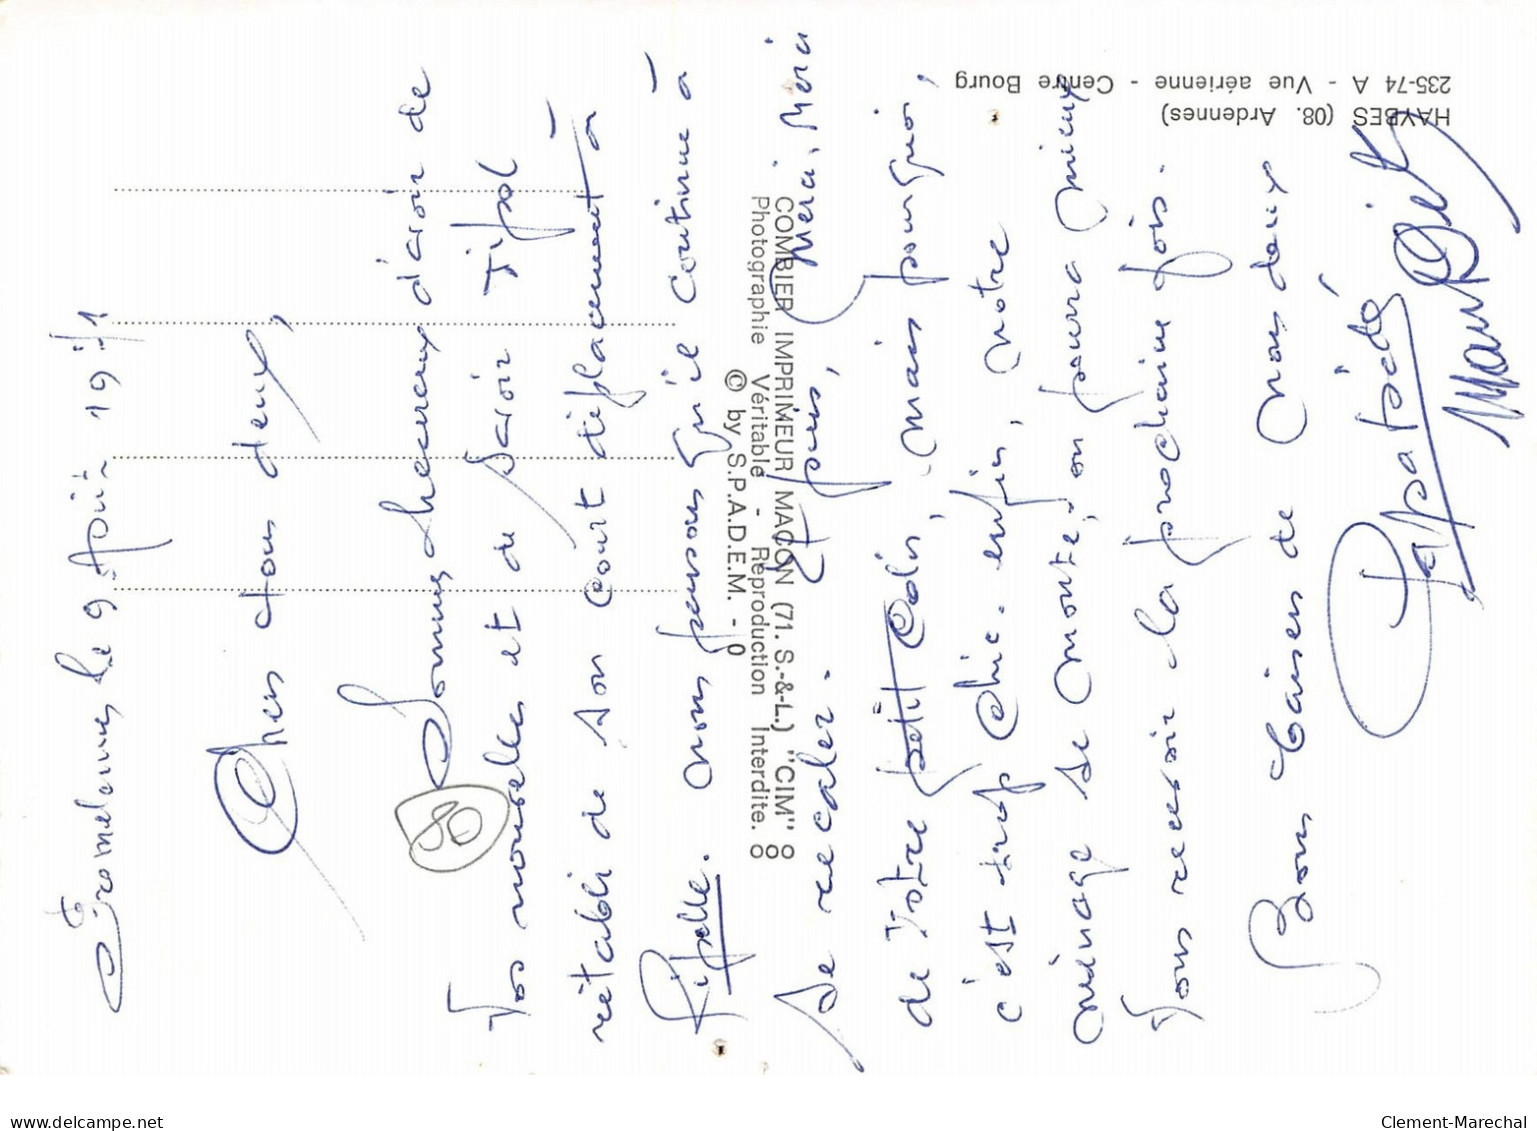 Fromelennes le 9 Août 1971
Chers tous deux,
Sommes heureux d'avoir de
Vos nouvelles et de savoir
rétabli de son court déplacement à
nous pensons qu'il continue à
se recaler. Et puis, Merci, Merci
de Votre petit Colis, mais pourquoi,
c'est trop Chic. enfin, notre
ménage se monte, on pourra mieux
Vous recevoir la prochaine fois.
Bons baisers de nous deux
80
HAYBES (08. Ardennes)
235-74 A - Vue aérienne - Centre Bourg
COMBIER IMPRIMEUR MACON (71. S.-&-L.) "CIM" 8
Photographie Véritable - Reproduction Interdite. 8
© by S.P.A.D.E.M. - 0
delcampe.net
Clement-Marechal